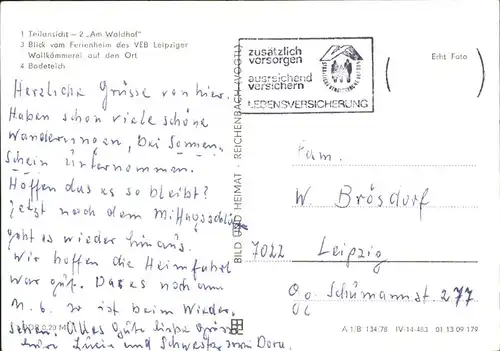 1 Teilansicht – 2 „Am Waldhof"
3 Blick vom Ferienheim des VEB Leipziger
Wollkämmerei auf den Ort
4 Badeteich
Herzliche Grüsse von hier.
Haben schon viele schöne
Wanderungen, bei Sonnen-
schein unternommen.
Hoffen das es so bleibt?
Jetzt nach dem Mittagsschlafe
geht es wieder hinaus.
Wir hoffen die Heimfahrt
war gut. Das es noch am
M. 6. so ist beim Wieder-
sehen. Alles Gute liebe Grüsse
eure und Schwester Dora.
zusätzlich
vorsorgen
ausreichend
versichern
LEBENSVERSICHERUNG
BILD UND HEIMAT · REICHENBACH (VOGTL)
Echt Foto
Fam.
W. Brösdorf
7022 Leipzig
Schumannst. 277
A 1/B 134/78 IV-14-483 01 13 09 179